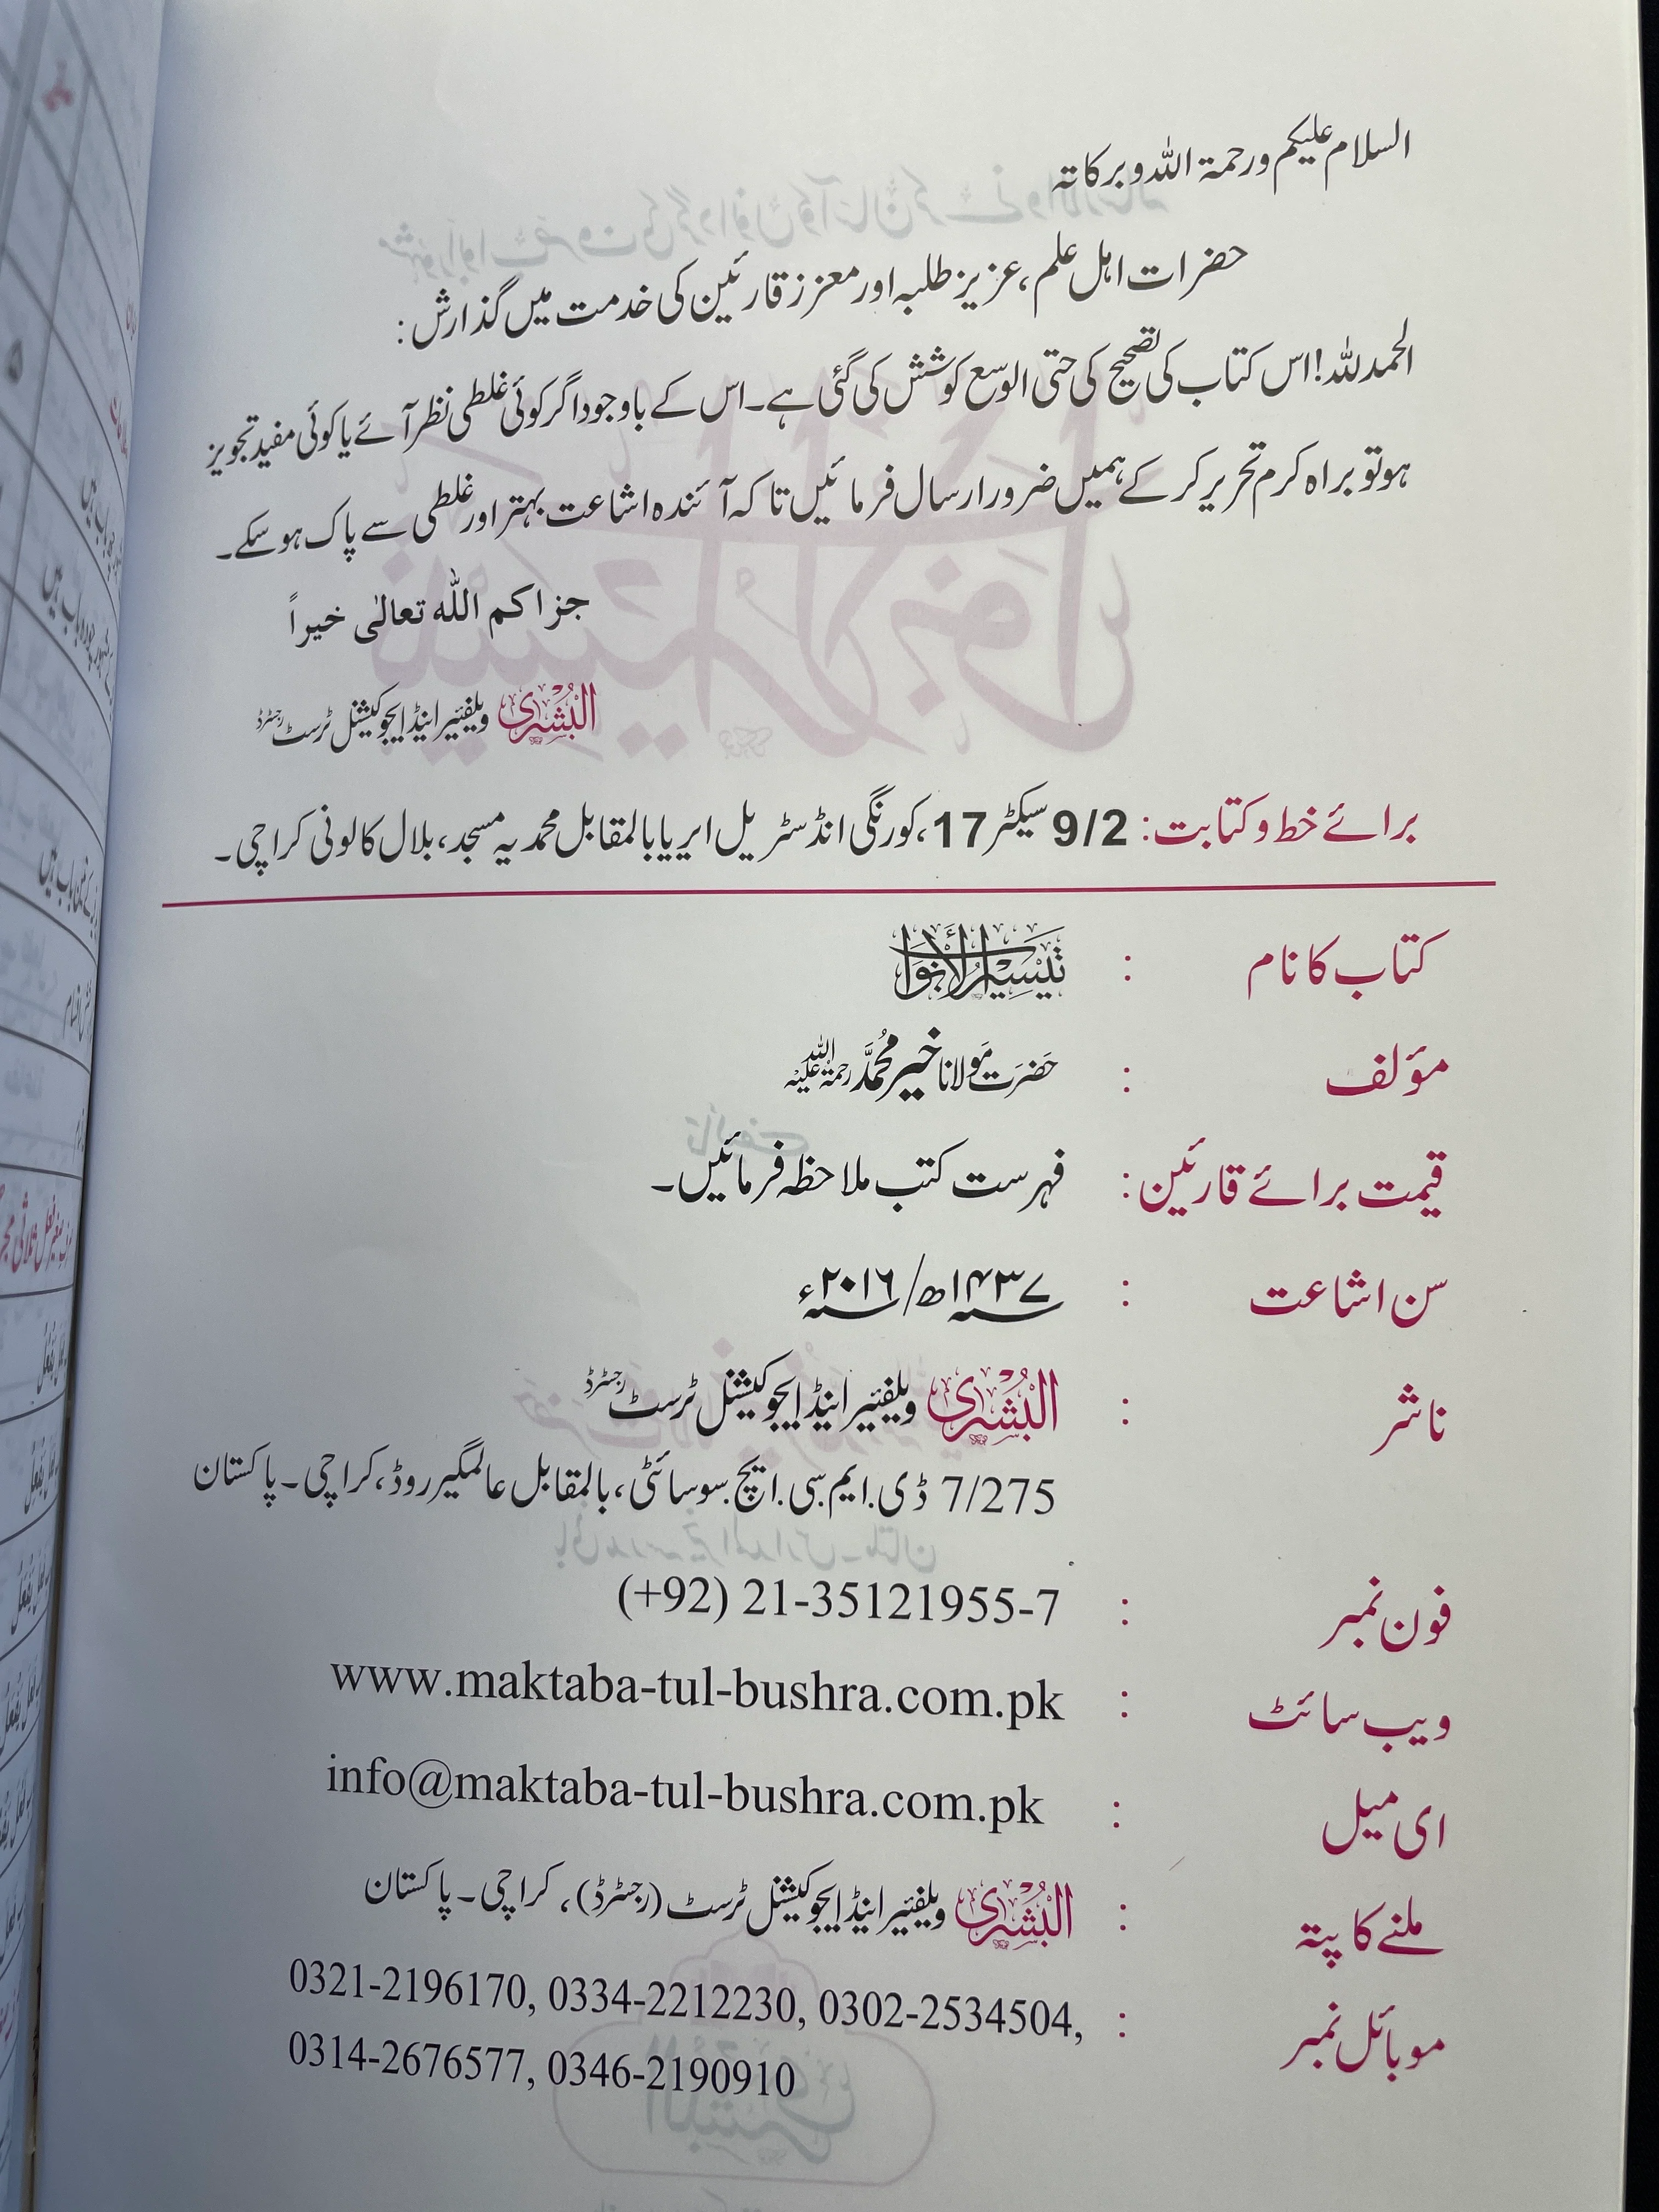 السلام علیکم ورحمۃ اللہ وبرکاتہ
حضرات اہل علم، عزیز طلبہ اور معزز قارئین کی خدمت میں گذارش:
الحمدللہ! اس کتاب کی تصحیح کی حتی الوسع کوشش کی گئی ہے۔ اس کے باوجود اگر کوئی غلطی نظر آئے یا کوئی مفید تجویز
ہو تو براہ کرم تحریر کر کے ہمیں ضرور ارسال فرمائیں تاکہ آئندہ اشاعت بہتر اور غلطی سے پاک ہو سکے۔
جزاکم اللہ تعالٰی خیراً
البُشریٰ ویلفئیر اینڈ ایجوکیشنل ٹرسٹ رجسٹرڈ
برائے خط و کتابت: 9/2 سیکٹر 17، کورنگی انڈسٹریل ایریا بالمقابل محمدیہ مسجد، بلال کالونی کراچی۔
کتاب کا نام : تیسیر الأبواب
مؤلف : حضرت مولانا خیر محمد رحمۃ اللہ علیہ
قیمت برائے قارئین: فہرست کتب ملاحظہ فرمائیں۔
سن اشاعت : ۱۴۳۷ھ/ ۲۰۱۶ء
ناشر : البُشریٰ ویلفئیر اینڈ ایجوکیشنل ٹرسٹ رجسٹرڈ
7/275 ڈی.ایم.سی.ایچ.سوسائٹی، بالمقابل عالمگیر روڈ، کراچی۔ پاکستان
فون نمبر : (+92) 21-35121955-7
ویب سائٹ : www.maktaba-tul-bushra.com.pk
ای میل : info@maktaba-tul-bushra.com.pk
ملنے کا پتہ : البُشریٰ ویلفئیر اینڈ ایجوکیشنل ٹرسٹ (رجسٹرڈ)، کراچی۔ پاکستان
موبائل نمبر : 0321-2196170, 0334-2212230, 0302-2534504,
0314-2676577, 0346-2190910